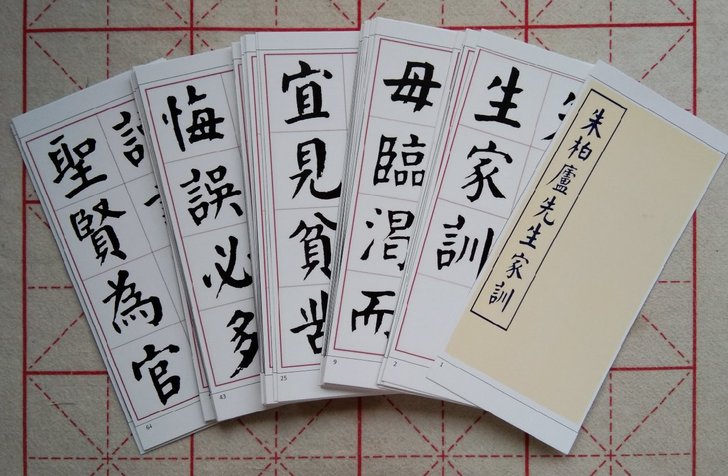 朱柏廬先生家訓
生家訓
毋臨渴而
宜見貧苦
悔誤必多
聖賢為官
1
2
9
25
43
64